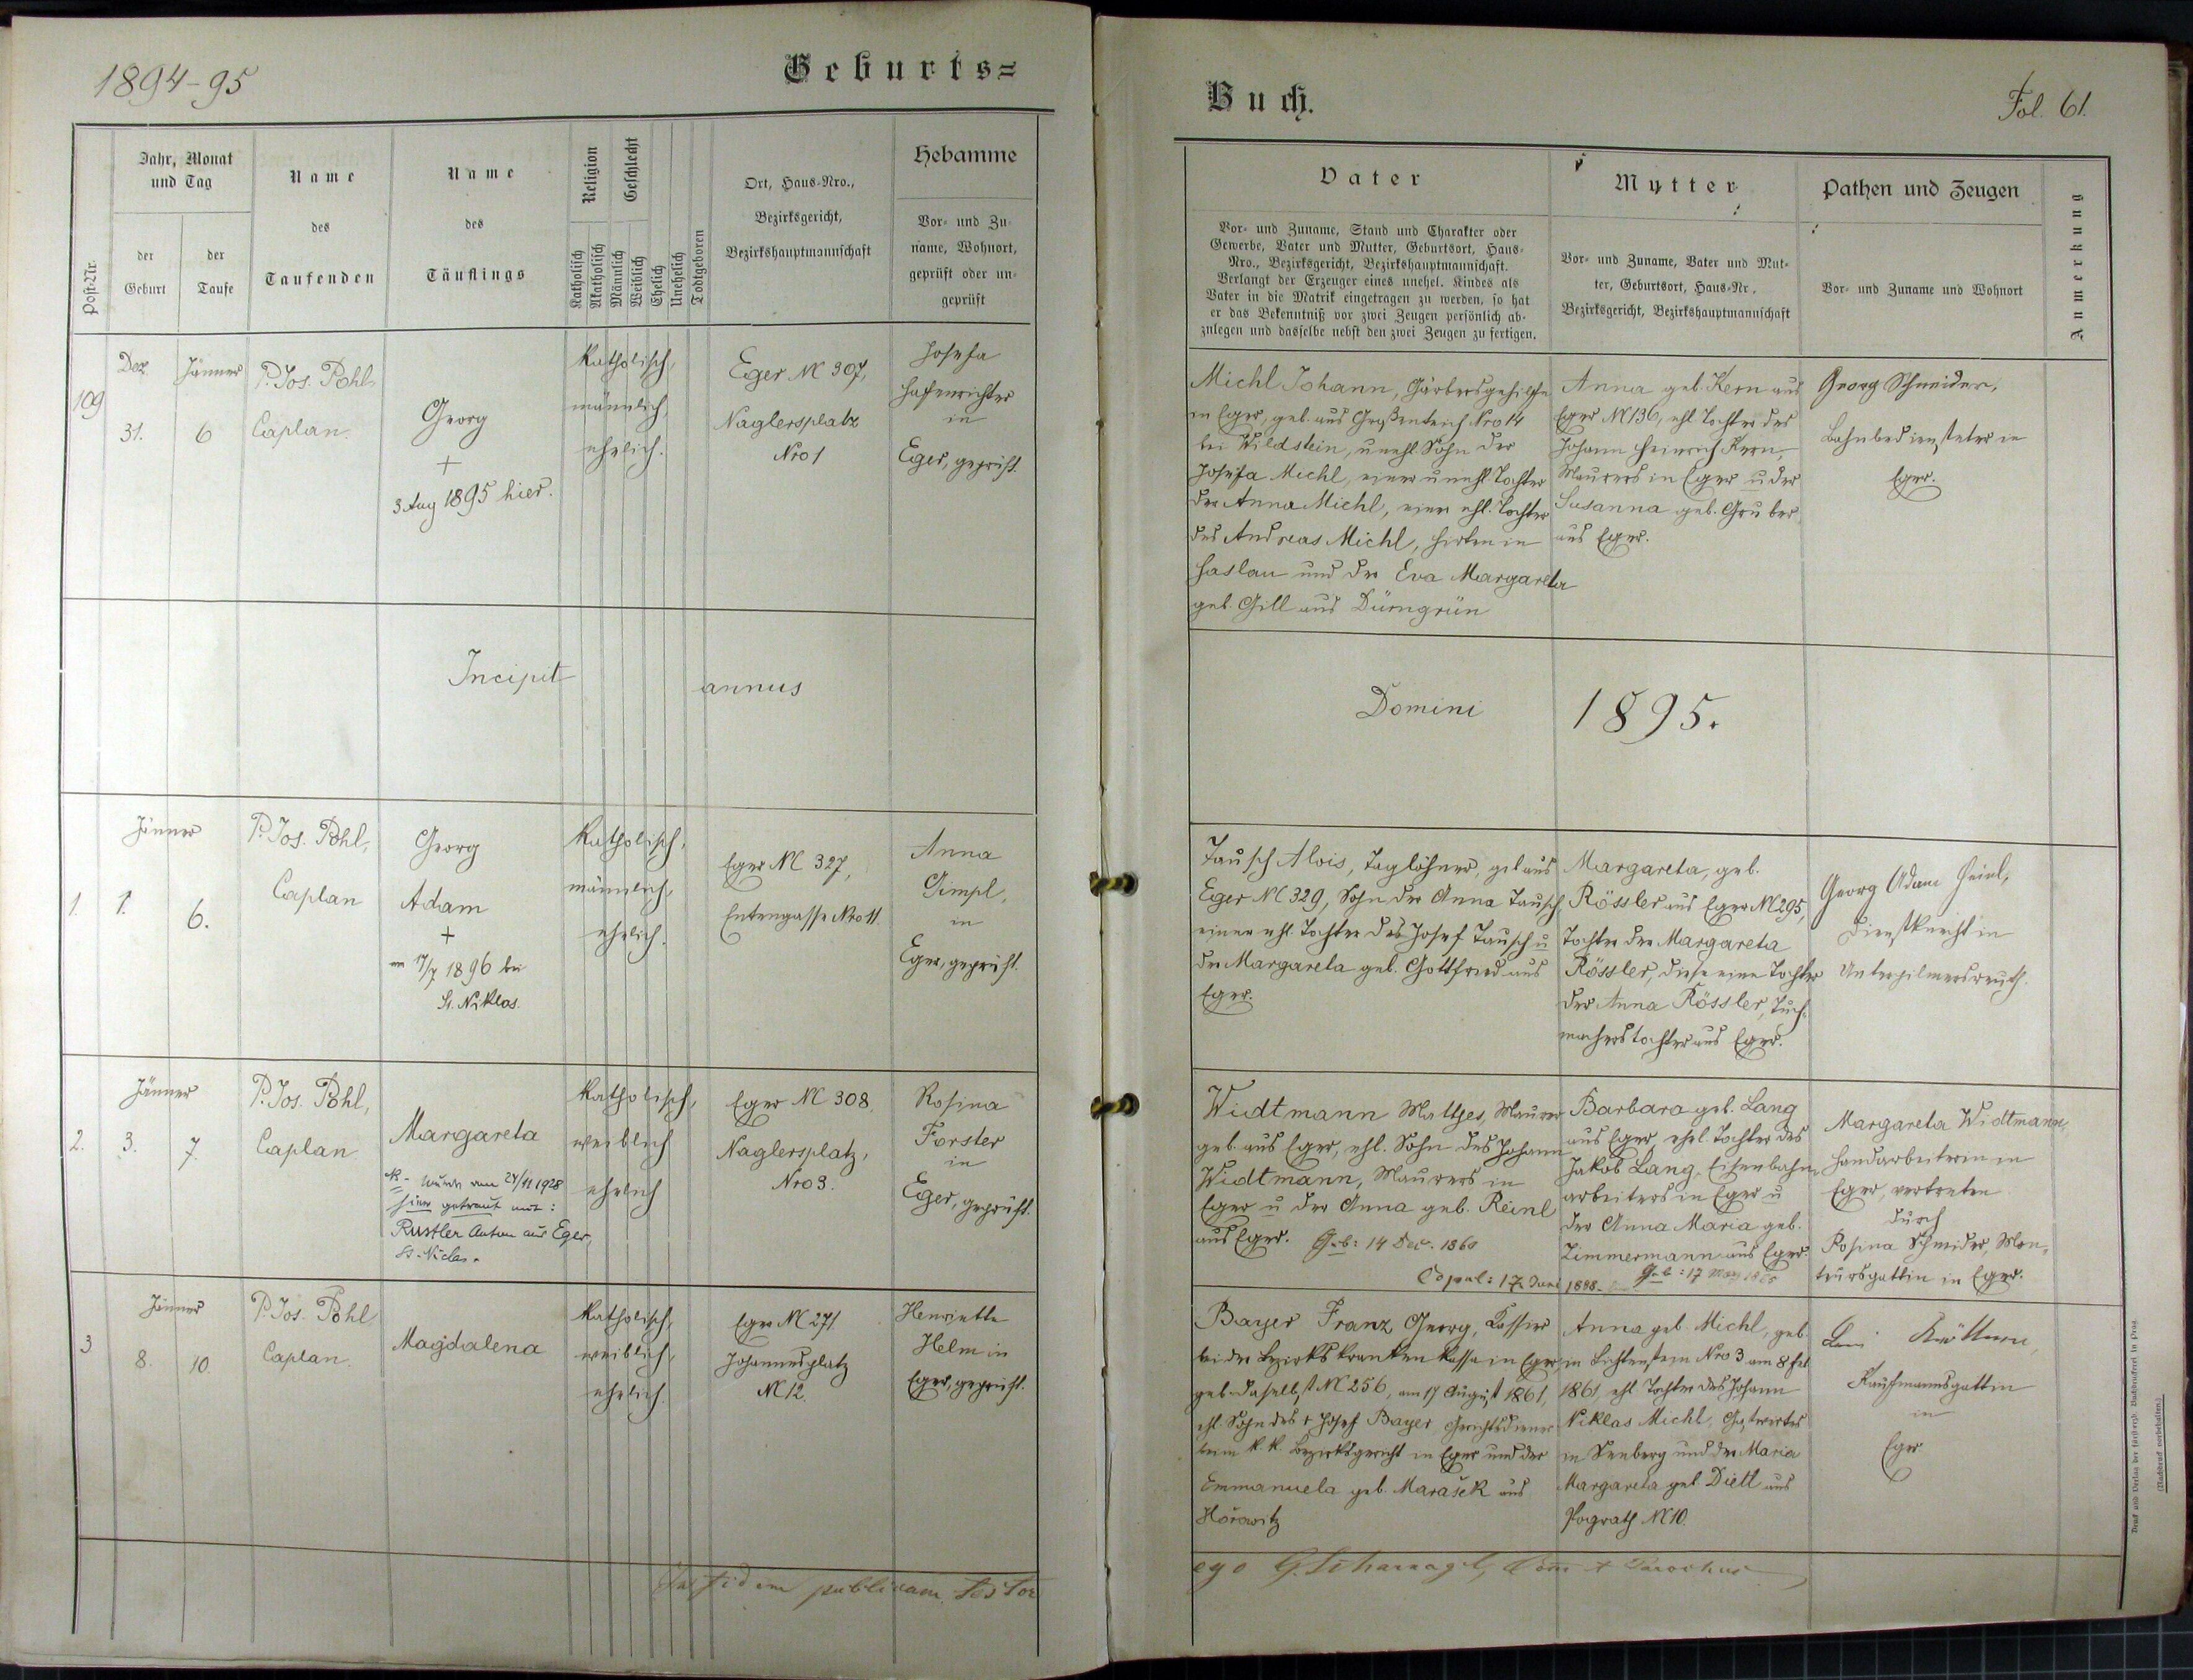 1894-95
Geburts=
Post-Nr.
Jahr, Monat
und Tag
der
Geburt
der
Taufe
Name
des
Taufenden
Name
des
Täuflings
Religion
Geschlecht
Katholisch
Akatholisch
Männlich
Weiblich
Ehelich
Unehelich
Todtgeboren
Ort, Haus-Nro.,
Bezirksgericht,
Bezirkshauptmannschaft
Hebamme
Vor- und Zu-
name, Wohnort,
geprüft oder un-
geprüft
109
Dez.
31.
Jänner
6
P. Jos. Pohl
Caplan.
Georg
+
3 Aug 1895 hier.
Katholisch,
männlich,
ehelich.
Eger N 307,
Naglersplatz
Nro 1
Josefa
Hafenrichter
in
Eger, geprüft.
Incipit annus
1.
Jänner
1.
6.
P. Jos. Pohl,
Caplan
Georg
Adam
+
am 17/7 1896 bei
St. Niklas.
Katholisch,
männlich,
ehelich.
Eger N 327,
Entengasse Nro 11.
Anna
Gimpl,
in
Eger, geprüft.
2.
Jänner
3.
7.
P. Jos. Pohl,
Caplan
Margareta
wurde am 24/11 1928
hier getraut mit:
Rustler Anton aus Eger,
St. Niclas.
Katholisch,
weiblich
ehelich
Eger N 308.
Naglersplatz,
Nro 3.
Rosina
Forster
in
Eger, geprüft.
3
Jänner
8.
10.
P. Jos. Pohl
Caplan.
Magdalena
Katholisch,
weiblich,
ehelich.
Eger N 271.
Johannesplatz
N 12.
Henriette
Helm in
Eger, geprüft.
In fidem publicam testor
Buch.
Fol. 61.
Vater
Vor- und Zuname, Stand und Charakter oder
Gewerbe, Vater und Mutter, Geburtsort, Haus-
Nro., Bezirksgericht, Bezirkshauptmannschaft.
Verlangt der Erzeuger eines unehel. Kindes als
Vater in die Matrik eingetragen zu werden, so hat
er das Bekenntniß vor zwei Zeugen persönlich ab-
zulegen und dasselbe nebst den zwei Zeugen zu fertigen.
Mutter
Vor- und Zuname, Vater und Mut-
ter, Geburtsort, Haus-Nr.,
Bezirksgericht, Bezirkshauptmannschaft
Pathen und Zeugen
Vor- und Zuname und Wohnort
Anmerkung
Michl Johann, Gärbersgehilfe
in Eger, geb. aus Großenteich Nro 14
bei Wildstein, unehl. Sohn der
Josefa Michl, einer unehl. Tochter
der Anna Michl, einer ehl. Tochter
des Andreas Michl, Hirten in
Haslau und der Eva Margareta
geb. Gill aus Dürngrün
Anna geb. Kern aus
Eger N 136, ehl. Tochter des
Johann Heinrich Kern,
Maurers in Eger u der
Susanna geb. Gruber
aus Eger.
Georg Schneider,
Bahnbediensteter in
Eger.
Domini 1895.
Tausch Alois, Taglöhner, geb aus
Eger N 329, Sohn der Anna Tausch,
einer ehl. Tochter des Josef Tausch u
der Margareta geb. Gottfried aus
Eger.
Margareta, geb.
Rössler aus Eger N 295,
Tochter der Margareta
Rössler, diese eine Tochter
der Anna Rössler, Tuch-
macherstochter aus Eger.
Georg Adam Heinl,
Dienstknecht in
Unterpilmersreuth.
Widtmann Mathes, Maurer
geb. aus Eger, ehl. Sohn des Johann
Widtmann, Maurers in
Eger u der Anna geb. Reinl
aus Eger. Geb: 14 Dec. 1860
Copul: 17. Juni 1888.
Barbara geb. Lang
aus Eger, ehel. Tochter des
Jakob Lang, Eisenbahn
arbeiters in Eger u
der Anna Maria geb.
Zimmermann aus Eger.
Geb: 17 1865
Margareta Widtmann,
Handarbeiterin in
Eger, vertreten
durch
Rosina Schmider, Mon-
teursgattin in Eger.
Bayer Franz Georg, Kassier
bei der Bezirkskrankenkassa in Eger,
geb. daselbst N 256, am 17 August 1861,
ehl. Sohn des + Josef Bayer Gerichtsdiener
beim k. k. Bezirksgericht in Eger und der
Emmanuela geb. Marašek aus
Horowitz
Anna geb. Michl, geb.
in Lichtenstein Nro 3 am 8
1861, ehl. Tochter des Johann
Niklas Michl, Gastwirtes
in Seeberg und der Maria
Margareta geb Dietl aus
Pograth N 10.
Kaufmannsgattin
in
Eger
ego G. Scharnagl, Com + Parochus
Druck und Verlag der fürsterzb. Buchdruckerei in Prag.
(Nachdruck vorbehalten.)